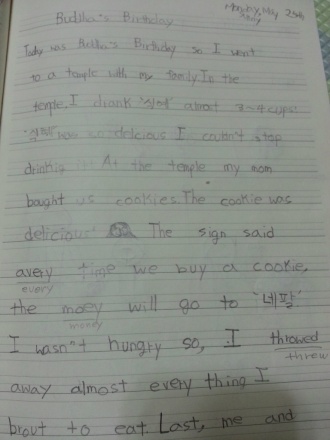 Buddha's Birthday
Monday, May 25th
Today was Buddha's Birthday so I went
to a temple with my family. In the
temple. I drank '식혜' almost 3~4 cups!
'식혜' was so delicious I couldn't stop
drinking At the temple my mom
bought us cookies. The cookie was
delicious The sign said
avery time we buy a cookie,
every
the moey will go to '네팔'
money
I wasn't hungry so, I throwed
threw
away almost every thing I
brout to eat. Last, me and